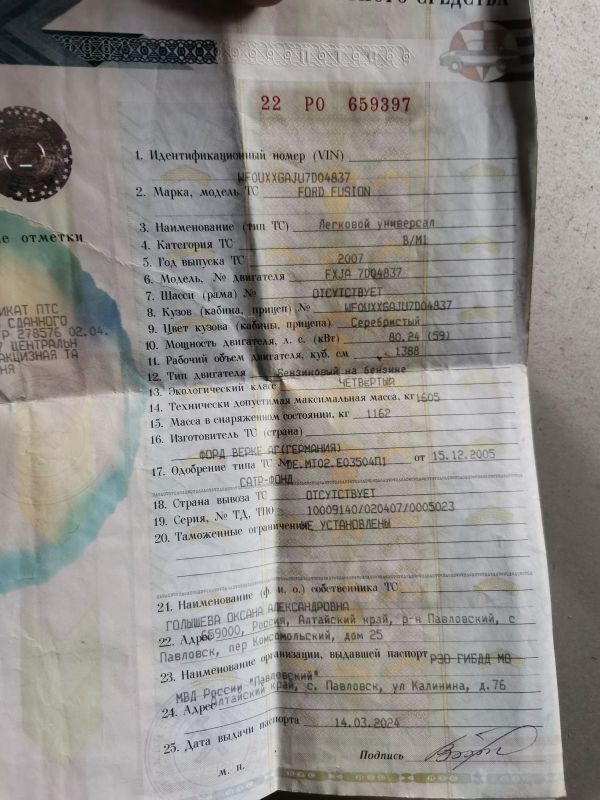 НОГО СРЕДСТВА
22 РО 659397
1. Идентификационный номер (VIN)
WFOUXXGAJU7D04837
2. Марка, модель ТС FORD FUSION
3. Наименование (тип ТС) Легковой универсал
4. Категория ТС B/M1
5. Год выпуска ТС 2007
6. Модель, № двигателя FXJA 7D04837
7. Шасси (рама) № ОТСУТСТВУЕТ
8. Кузов (кабина, прицеп) № WFOUXXGAJU7D04837
9. Цвет кузова (кабины, прицепа) Серебристый
10. Мощность двигателя, л. с. (кВт) 80.24 (59)
11. Рабочий объем двигателя, куб. см 1388
12. Тип двигателя Бензиновый на бензине
13. Экологический класс ЧЕТВЕРТЫЙ
14. Технически допустимая максимальная масса, кг 1605
15. Масса в снаряженном состоянии, кг 1162
16. Изготовитель ТС (страна)
ФОРД ВЕРКЕ АГ(ГЕРМАНИЯ)
17. Одобрение типа ТС № DE.MT02.E03504П1 от 15.12.2005
САТР-ФОНД
18. Страна вывоза ТС ОТСУТСТВУЕТ
19. Серия, № ТД, ТПО 10009140/020407/0005023
20. Таможенные ограничения НЕ УСТАНОВЛЕНЫ
21. Наименование (ф. и. о.) собственника ТС
ГОЛЫШЕВА ОКСАНА АЛЕКСАНДРОВНА
22. Адрес 659000, Россия, Алтайский край, р-н Павловский, с
Павловск, пер Комсомольский, дом 25
23. Наименование организации, выдавшей паспорт РЭО ГИБДД МО
МВД России "Павловский"
24. Адрес Алтайский край, с. Павловск, ул Калинина, д.76
25. Дата выдачи паспорта 14.03.2024
м. п. Подпись
е отметки
ИКАТ ПТС
СДАННОГО
Р 278576 02.04.
7 ЦЕНТРАЛЬН
АКЦИЗНАЯ ТА
НЯ